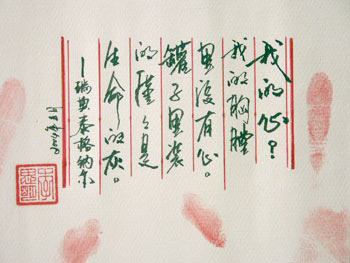 我的心？
我的胸膛
里没有心。
罐子里装
的仅仅是
生命的灰。
—瑞典 泰格纳尔